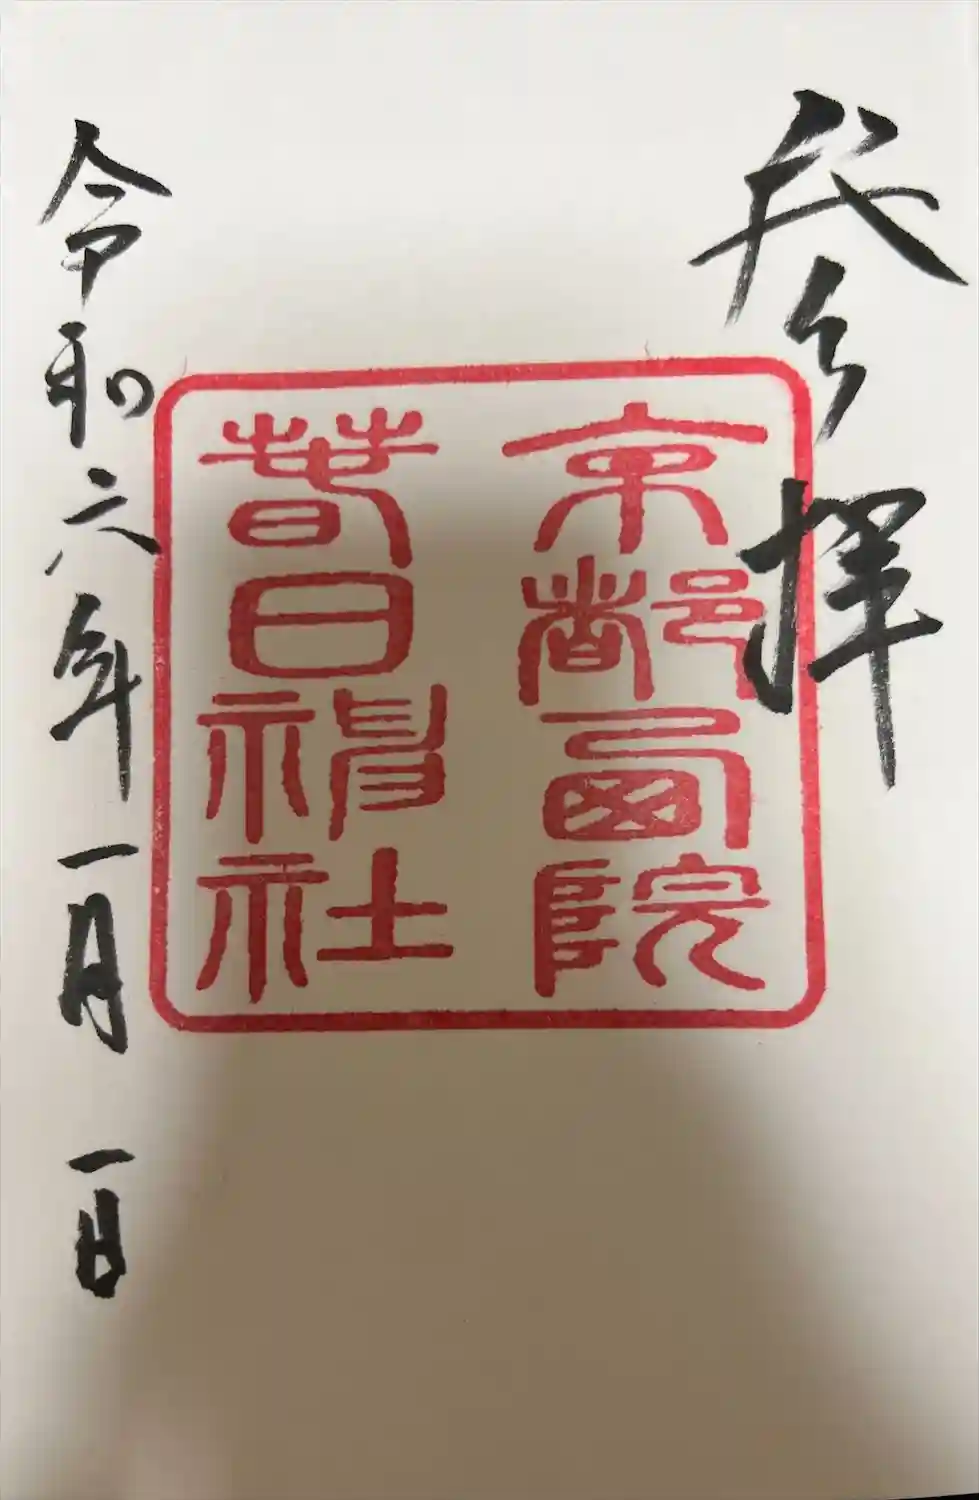 参拝
京都西院
春日神社
令和六年一月一日